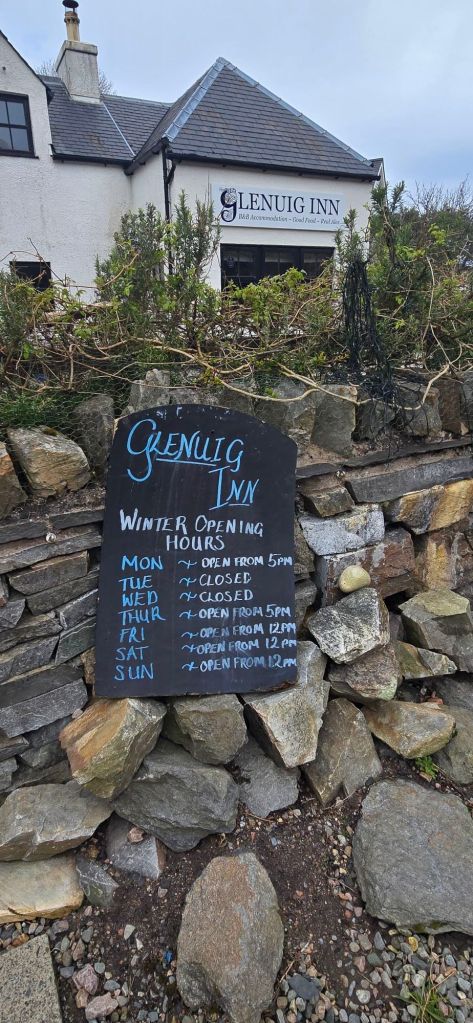 GLENUIG INN
B&B Accommodation ~ Good Food ~ Real Ales
GLENUIG
INN
WINTER OPENING
HOURS
MON ~ OPEN FROM 5PM
TUE ~ CLOSED
WED ~ CLOSED
THUR ~ OPEN FROM 5PM
FRI ~ OPEN FROM 12PM
SAT ~ OPEN FROM 12PM
SUN ~ OPEN FROM 12PM